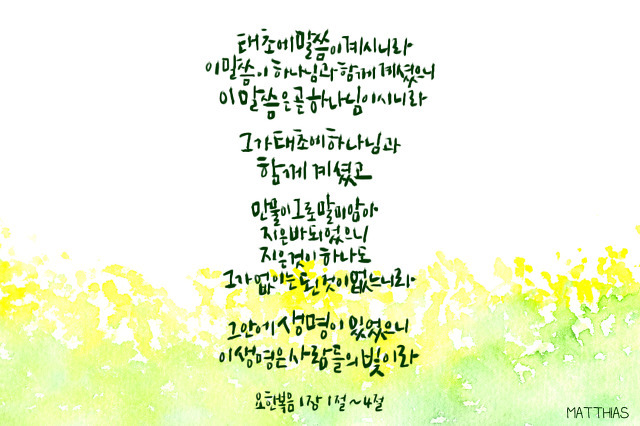 태초에 말씀이 계시니라
이 말씀이 하나님과 함께 계셨으니
이 말씀은 곧 하나님이시니라
그가 태초에 하나님과
함께 계셨고
만물이 그로 말미암아
지은바 되었으니
지은것이 하나도
그가 없이는 된 것이 없느니라
그 안에 생명이 있었으니
이 생명은 사람들의 빛이라
요한복음 1장 1절~4절
MATTHIAS